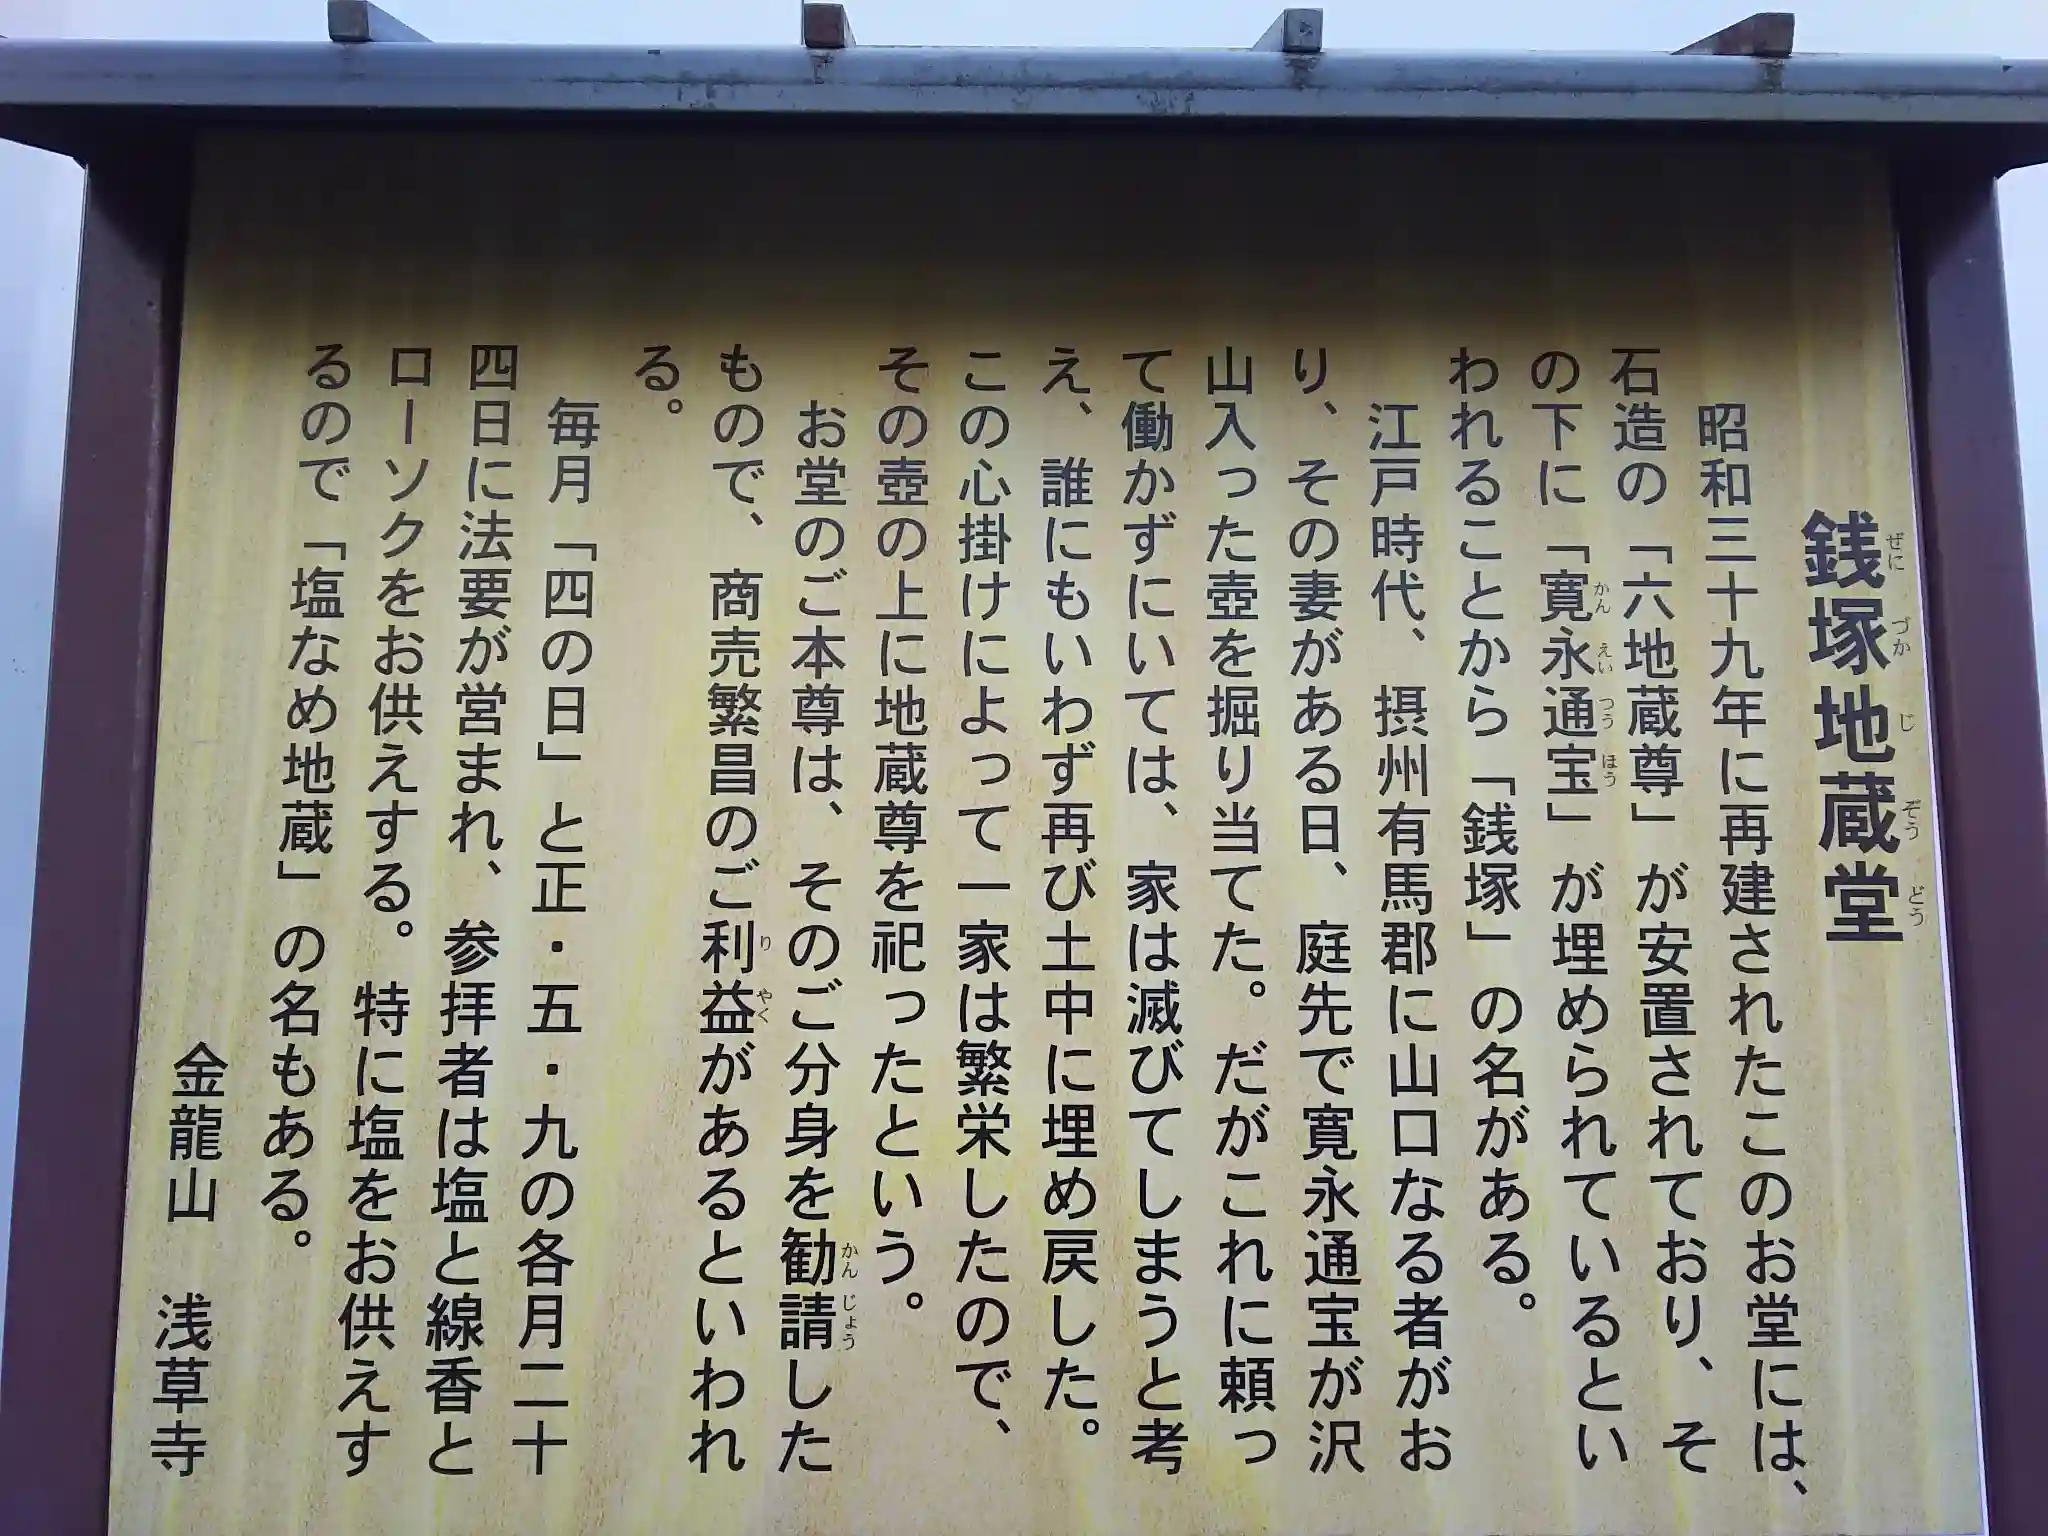 銭塚地蔵堂
ぜにづかじぞうどう
昭和三十九年に再建されたこのお堂には、
石造の「六地蔵尊」が安置されており、そ
の下に「寛永通宝」が埋められているとい
かんえいつうほう
われることから「銭塚」の名がある。
江戸時代、摂州有馬郡に山口なる者がお
り、その妻がある日、庭先で寛永通宝が沢
山入った壺を掘り当てた。だがこれに頼っ
て働かずにいては、家は滅びてしまうと考
え、誰にもいわず再び土中に埋め戻した。
この心掛けによって一家は繁栄したので、
その壺の上に地蔵尊を祀ったという。
お堂のご本尊は、そのご分身を勧請した
かんじょう
もので、商売繁昌のご利益があるといわれ
りやく
る。
毎月「四の日」と正・五・九の各月二十
四日に法要が営まれ、参拝者は塩と線香と
ローソクをお供えする。特に塩をお供えす
るので「塩なめ地蔵」の名もある。
金龍山 浅草寺